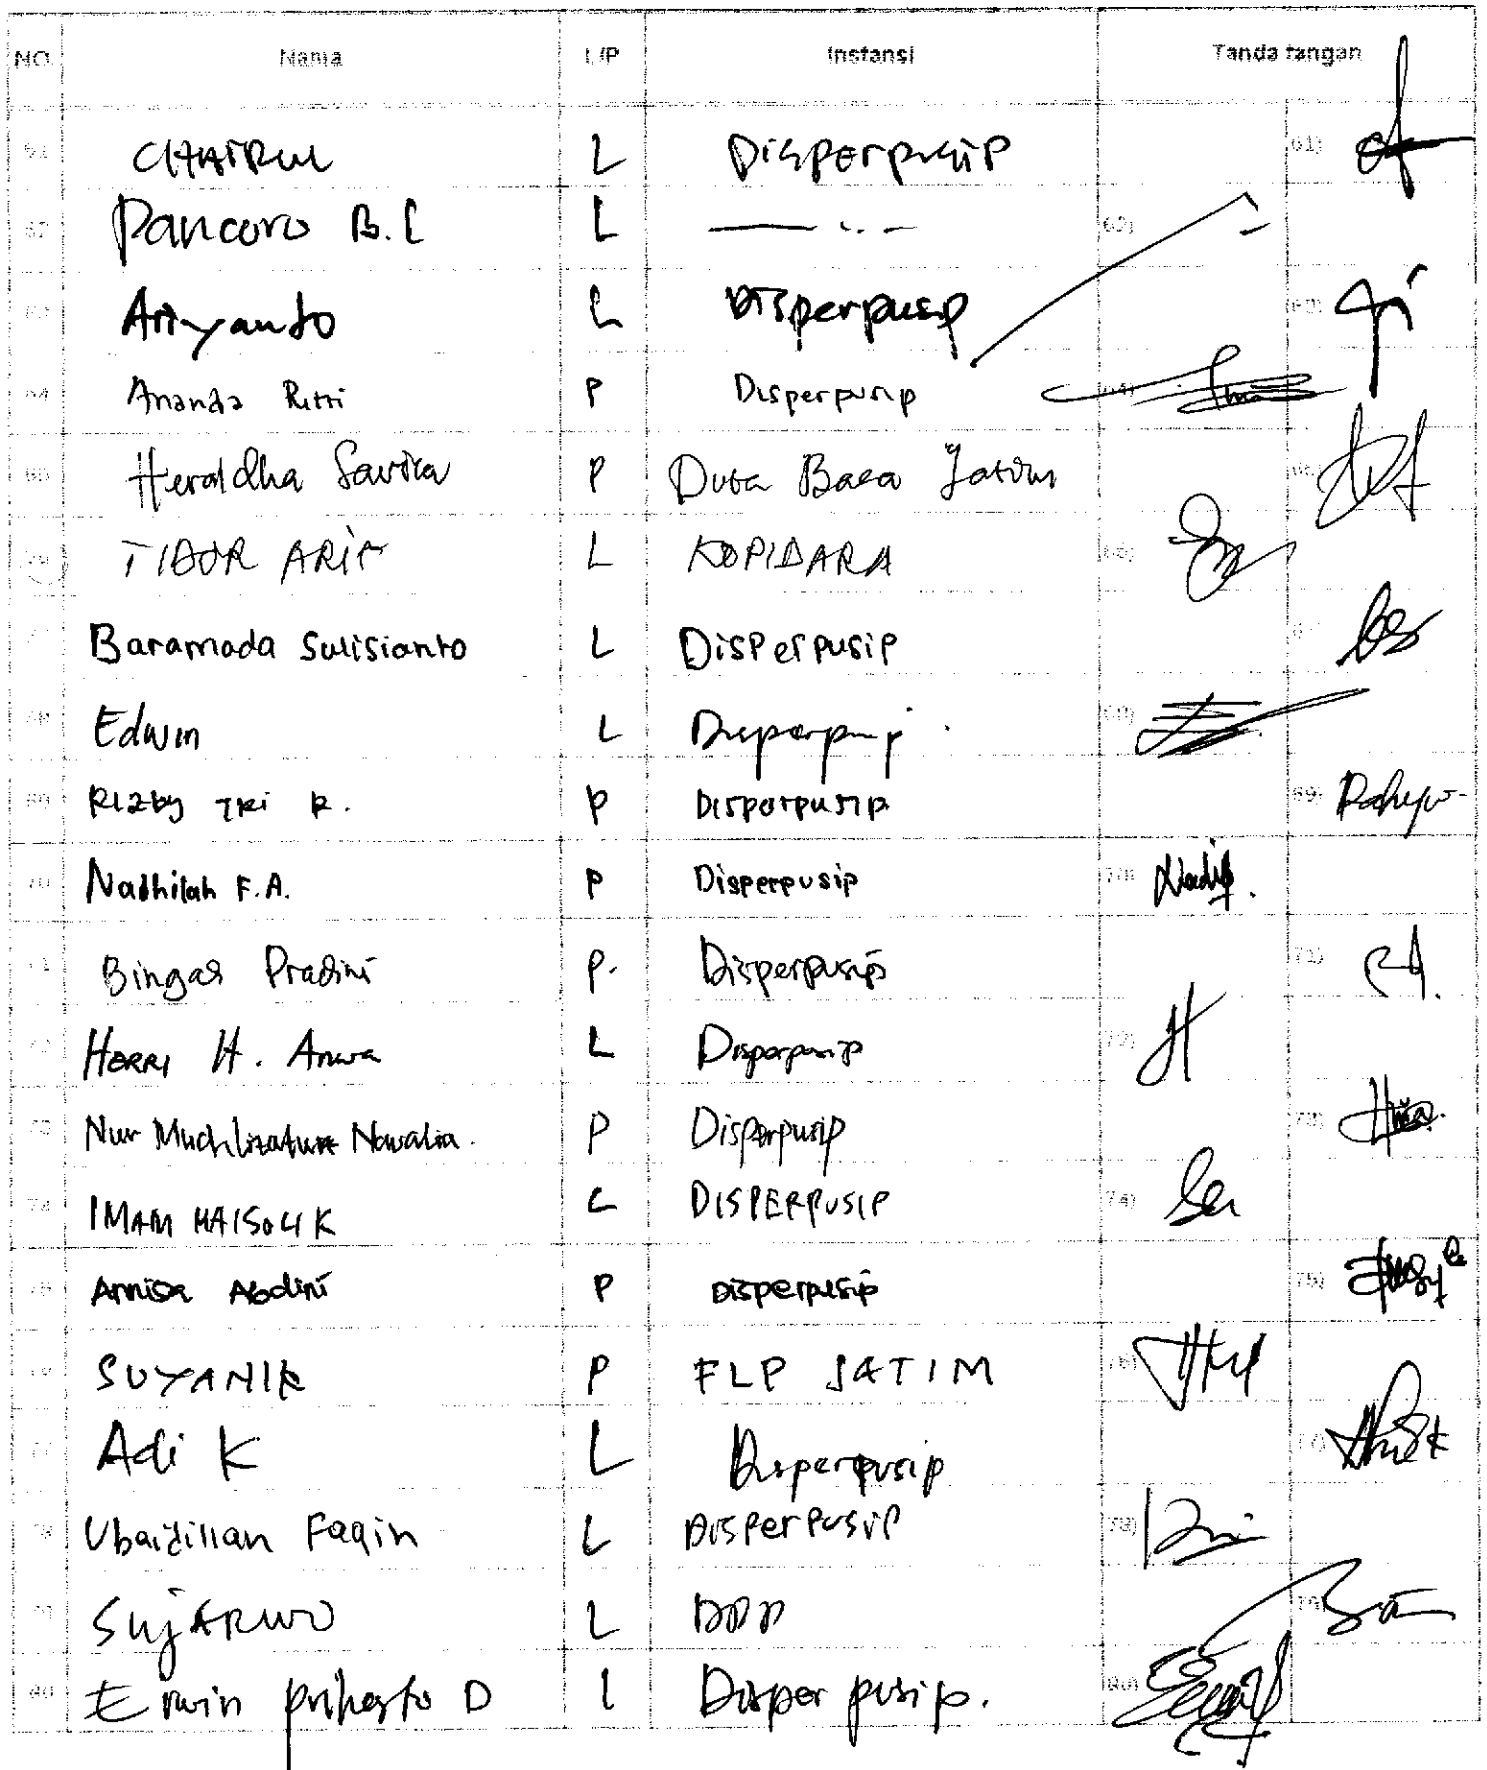 NO. Nama L/P Instansi Tanda tangan
61 CHAIRUL L Disperpusip 61)
62 Pancoro B. L 62)
63 Ariyanto L Disperpusip 63)
64 Ananda Putri P Disperpusip 64)
65 Heraldha Savira P Duta Baca Jatim
TIBOR ARIF L KOPIDARA 66)
Baramada Sulisianto L Disperpusip
68 Edwin L 68)
69 Rizby TRi R. P Disperpusip 69) Rahayu
70 Nadhilah F.A. P Disperpusip 70) Nadif.
71 Bingar Pradini P. Disperpusip 71)
72 Herri H. Anwa L Disperpusip 72)
73 Nur Muchlizatun Nawalia. P Disperpusip 73)
74 IMAM L DISPERPUSIP 74)
75 Annisa Abdini P Disperpusip 75)
76 SUYANIK P FLP JATIM 76)
77 Adi K L Disperpusip 77)
78 Ubaidillah Faqin L Disperpusip 78)
79 SujARWO L 79)
80 Erwin D L Disperpusip. 80)